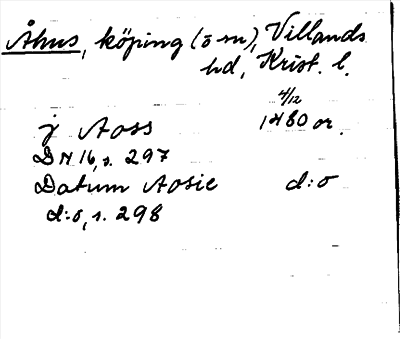 Åhus, köping (ō m), Villands
hd, Krist. l.
4/12
j Aoss 1480 or.
DN 16, s. 297
Datum Aosie d:o
d:o, s. 298